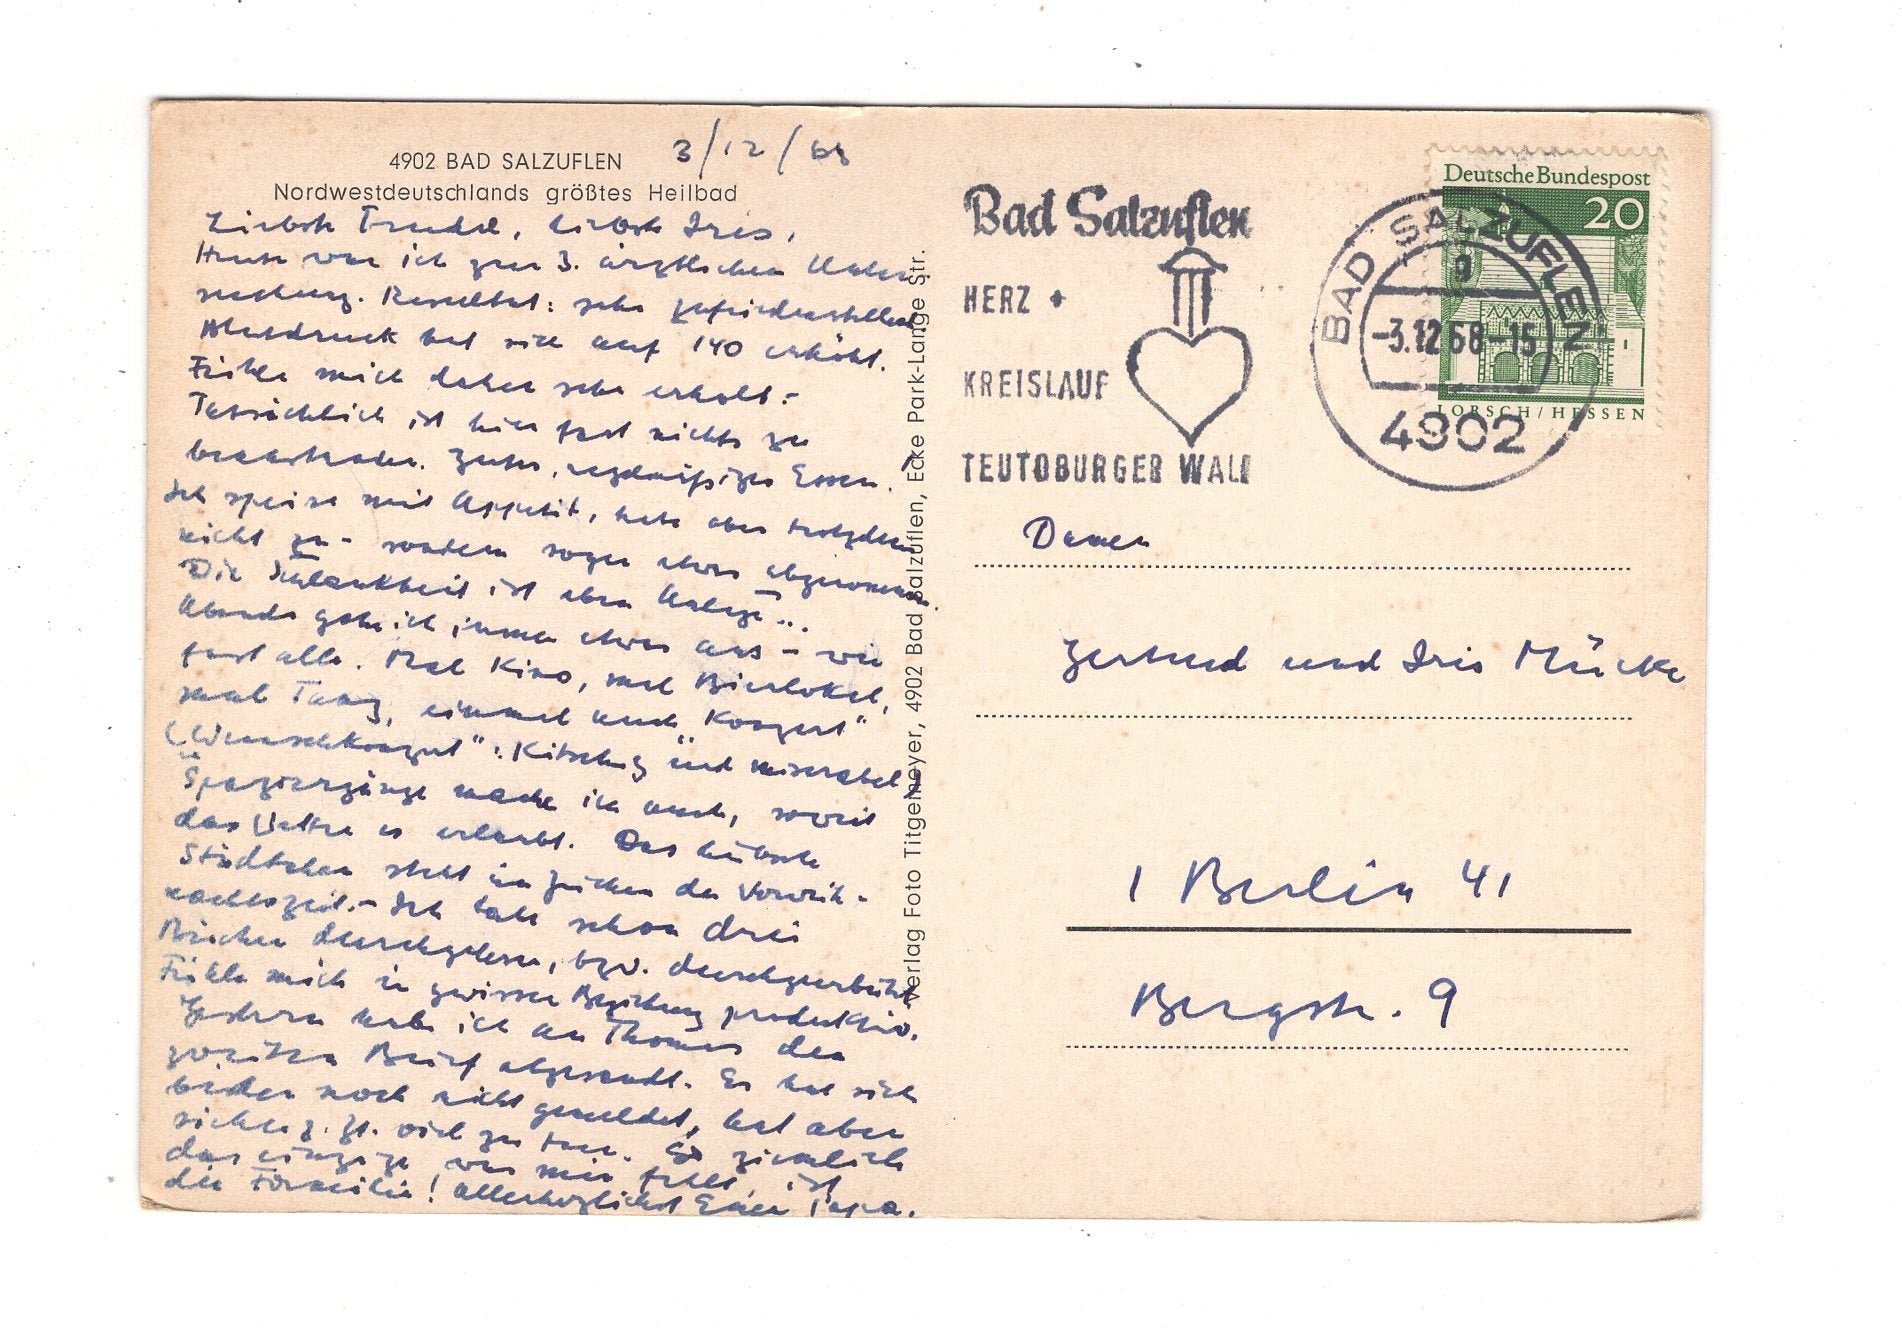 4902 BAD SALZUFLEN
Nordwestdeutschlands größtes Heilbad
3/12/68
Liebste Trudel, liebste Iris,
Heute war ich zur 3. ärztlichen Unter-
suchung. Resultat: sehr zufriedenstellend,
Blutdruck hat sich auf 140 erhöht.
Fühle mich daher sehr erholt.-
Tatsächlich ist hier fast nichts zu
beanstanden. Gutes, regelmäßiges Essen.
Ich speise mit Appetit, habe aber trotzdem
nicht zu- sondern sogar etwas abgenommen.
Die Schlankheit ist eben Anlage...
Abends gehe ich immer etwas aus - wie
fast alle. Mal Kino, mal Bierlokal,
mal Tanz, einmal auch "Konzert"
("Wunschkonzert": Kitschig und miserabel
Spaziergänge mache ich auch, soweit
das Wetter es erlaubt. Das hübsche
Städtchen steht im Zeichen der Vorweih-
nachtszeit.- Ich habe schon drei
Bücher durchgelesen, bzw. durchgearbeitet
Fühle mich in gewisser Beziehung produktiv.
Gestern habe ich an Thomas den
zweiten Brief abgesandt. Er hat sich
bisher noch nicht gemeldet, hat aber
sicher z. Zt. viel zu tun. So ziemlich
das einzige was mir fehlt ist
die Familie! Allerherzlichst Euer Papa.
Verlag Foto Tittgemeyer, 4902 Bad Salzuflen, Ecke Park-Lange Str.
Bad Salzuflen
HERZ +
KREISLAUF
TEUTOBURGER WALD
Deutsche Bundespost
20
LORSCH/HESSEN
BAD SALZUFLEN
g
-3.12.68-15
4902
Damen
Gertrud und Iris Mücke
1 Berlin 41
Bergstr. 9